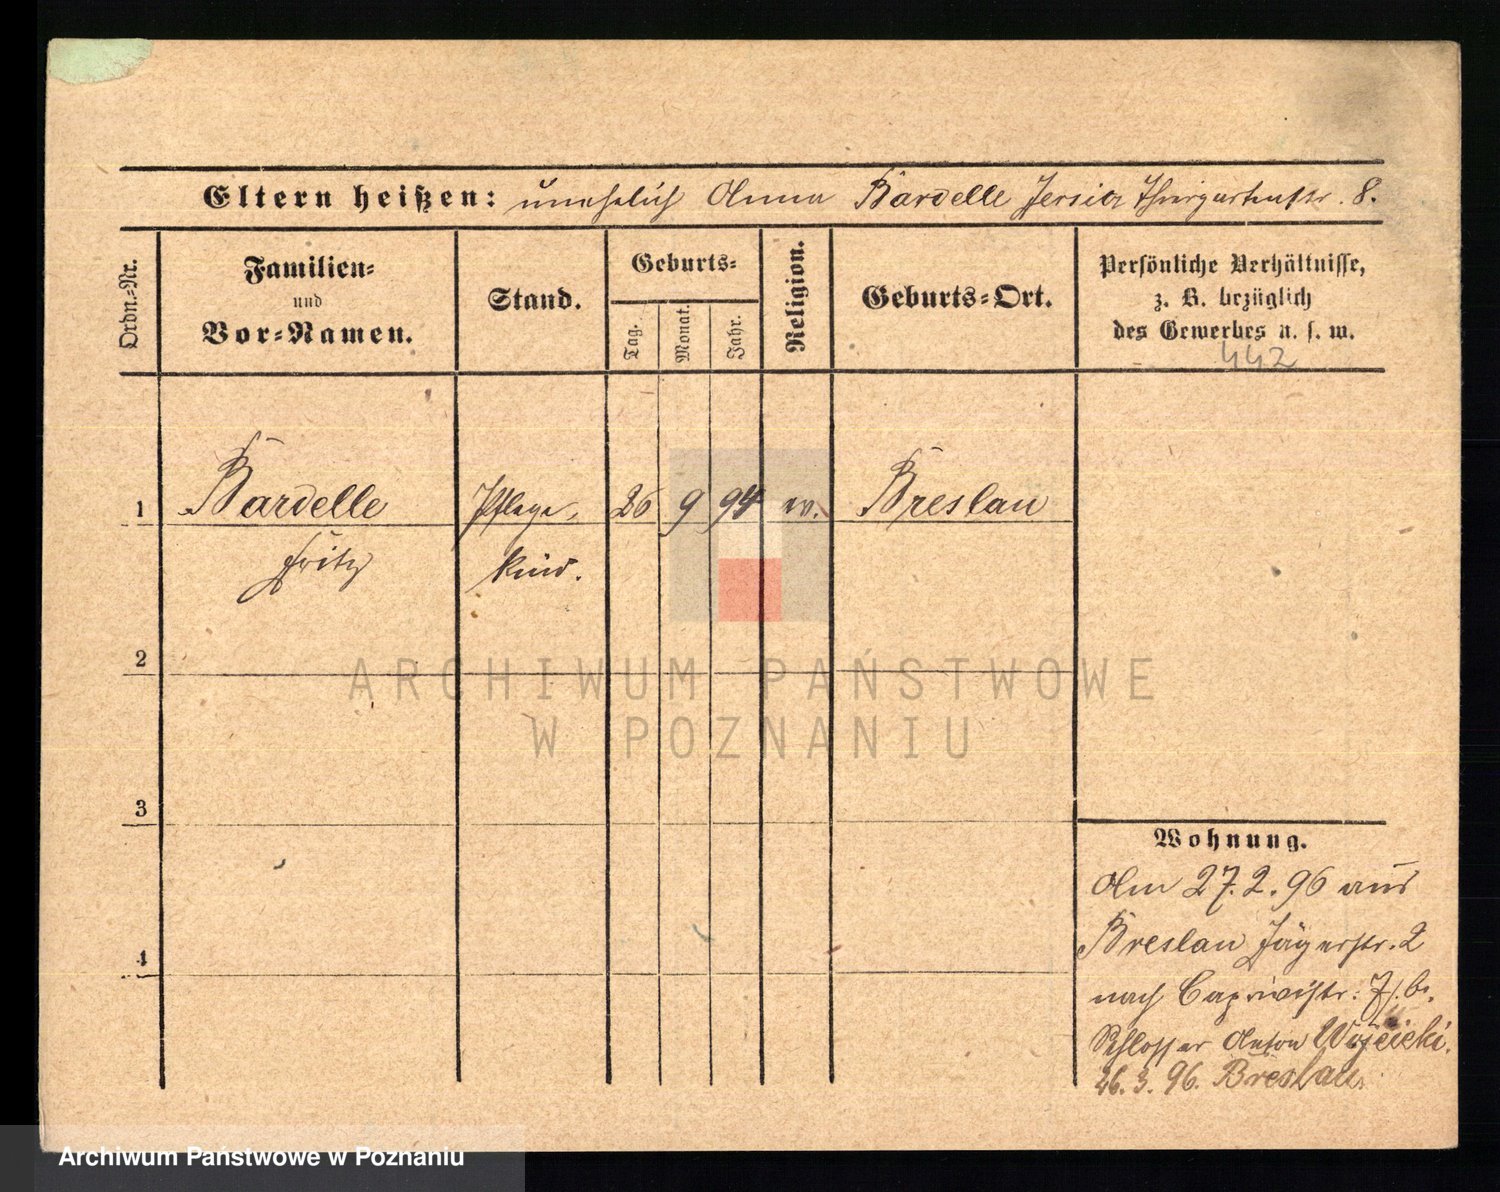 Eltern heißen: unehelich Anna Bardelle Jersitz Thiergartenstr. 8.
Ordn.=Nr.
Familien=
und
Vor=Namen.
Stand.
Geburts=
Tag.
Monat.
Jahr.
Religion.
Geburts=Ort.
Persönliche Verhältnisse,
z. B. bezüglich
des Gewerbes u. s. w.
442
1 Bardelle Pflege= 26 9 94 ev. Breslau
Fritz kind.
2
3
4
Wohnung.
Am 27.2.96 aus
Breslau Jägerstr. 2
nach Caprivistr: 7/. b.
Schlosser Anton Wójcicki.
26.3.96. Breslau.
ARCHIWUM PAŃSTWOWE
W POZNANIU
Archiwum Państwowe w Poznaniu